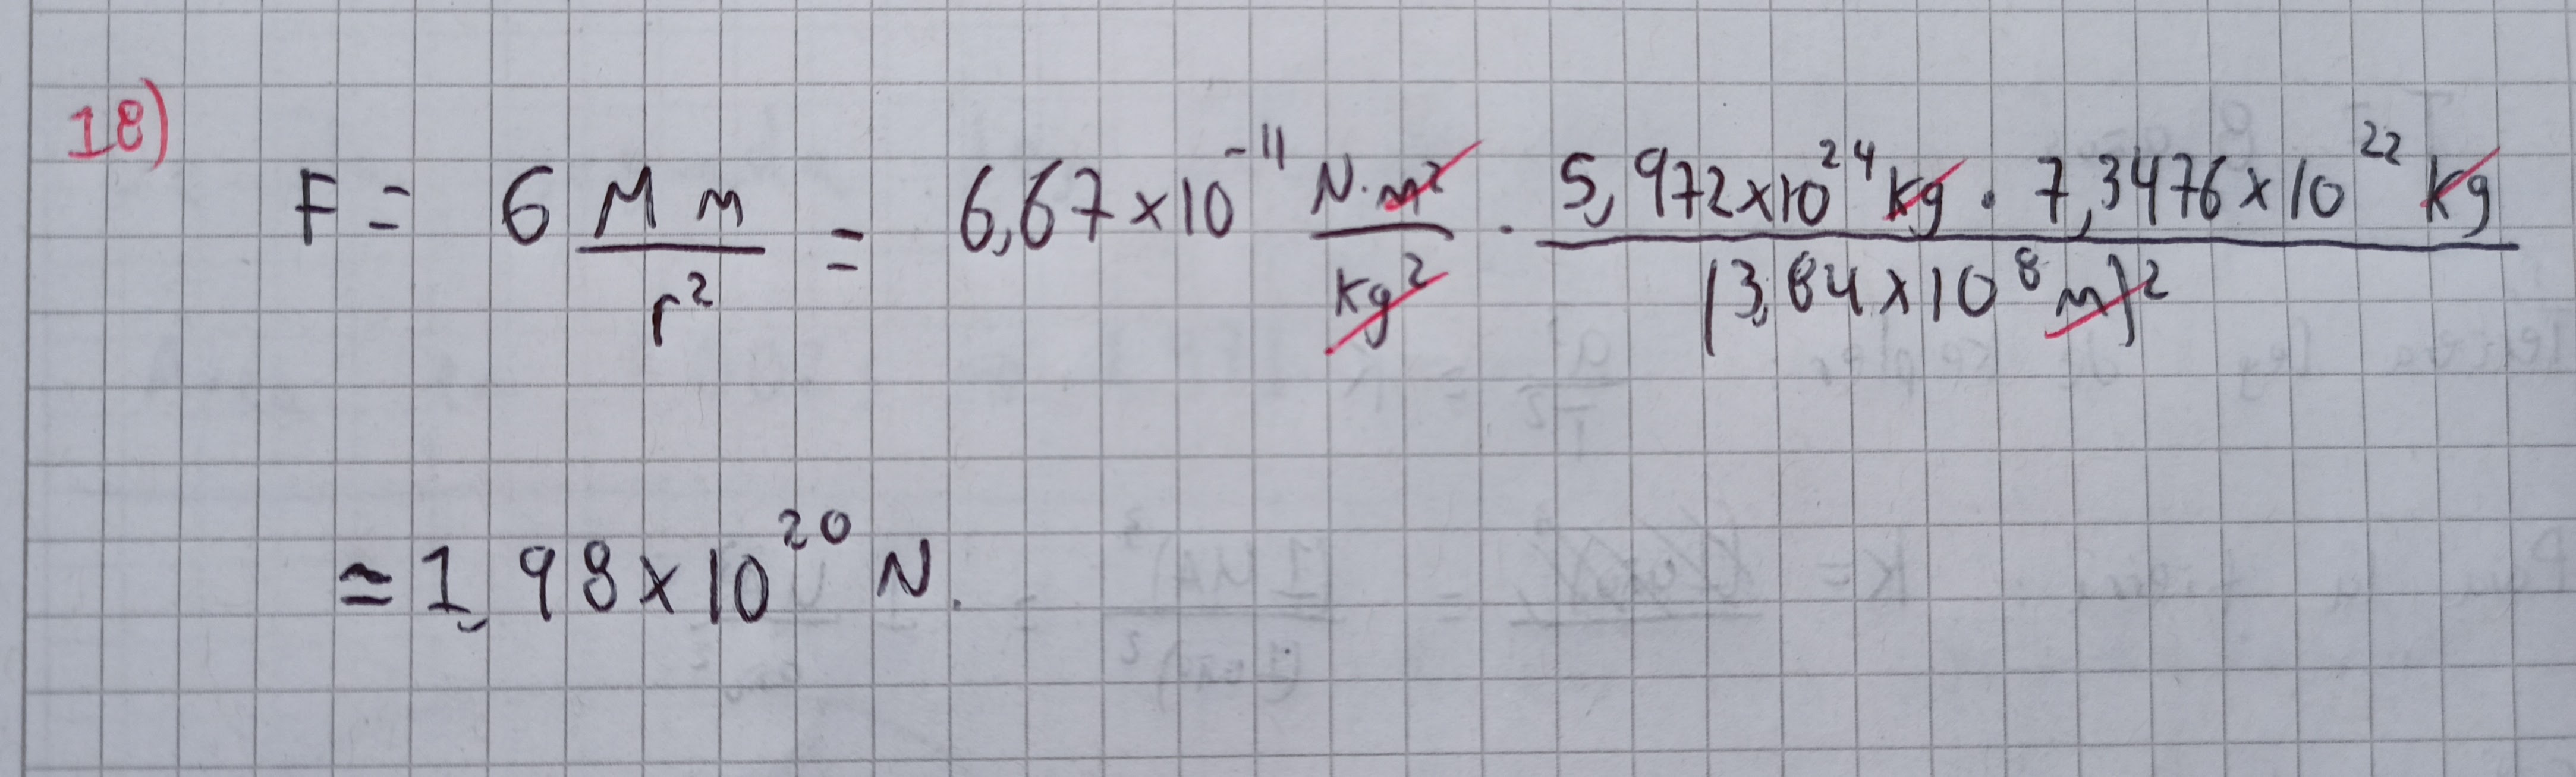 18)
F = G \frac{M m}{r^2} = 6,67 x 10^{-11} \frac{N \cdot m^2}{kg^2} \cdot \frac{5,972 x 10^{24} kg \cdot 7,3476 x 10^{22} kg}{(3,84 x 10^8 m)^2}
≃ 1,98 x 10^{20} N.